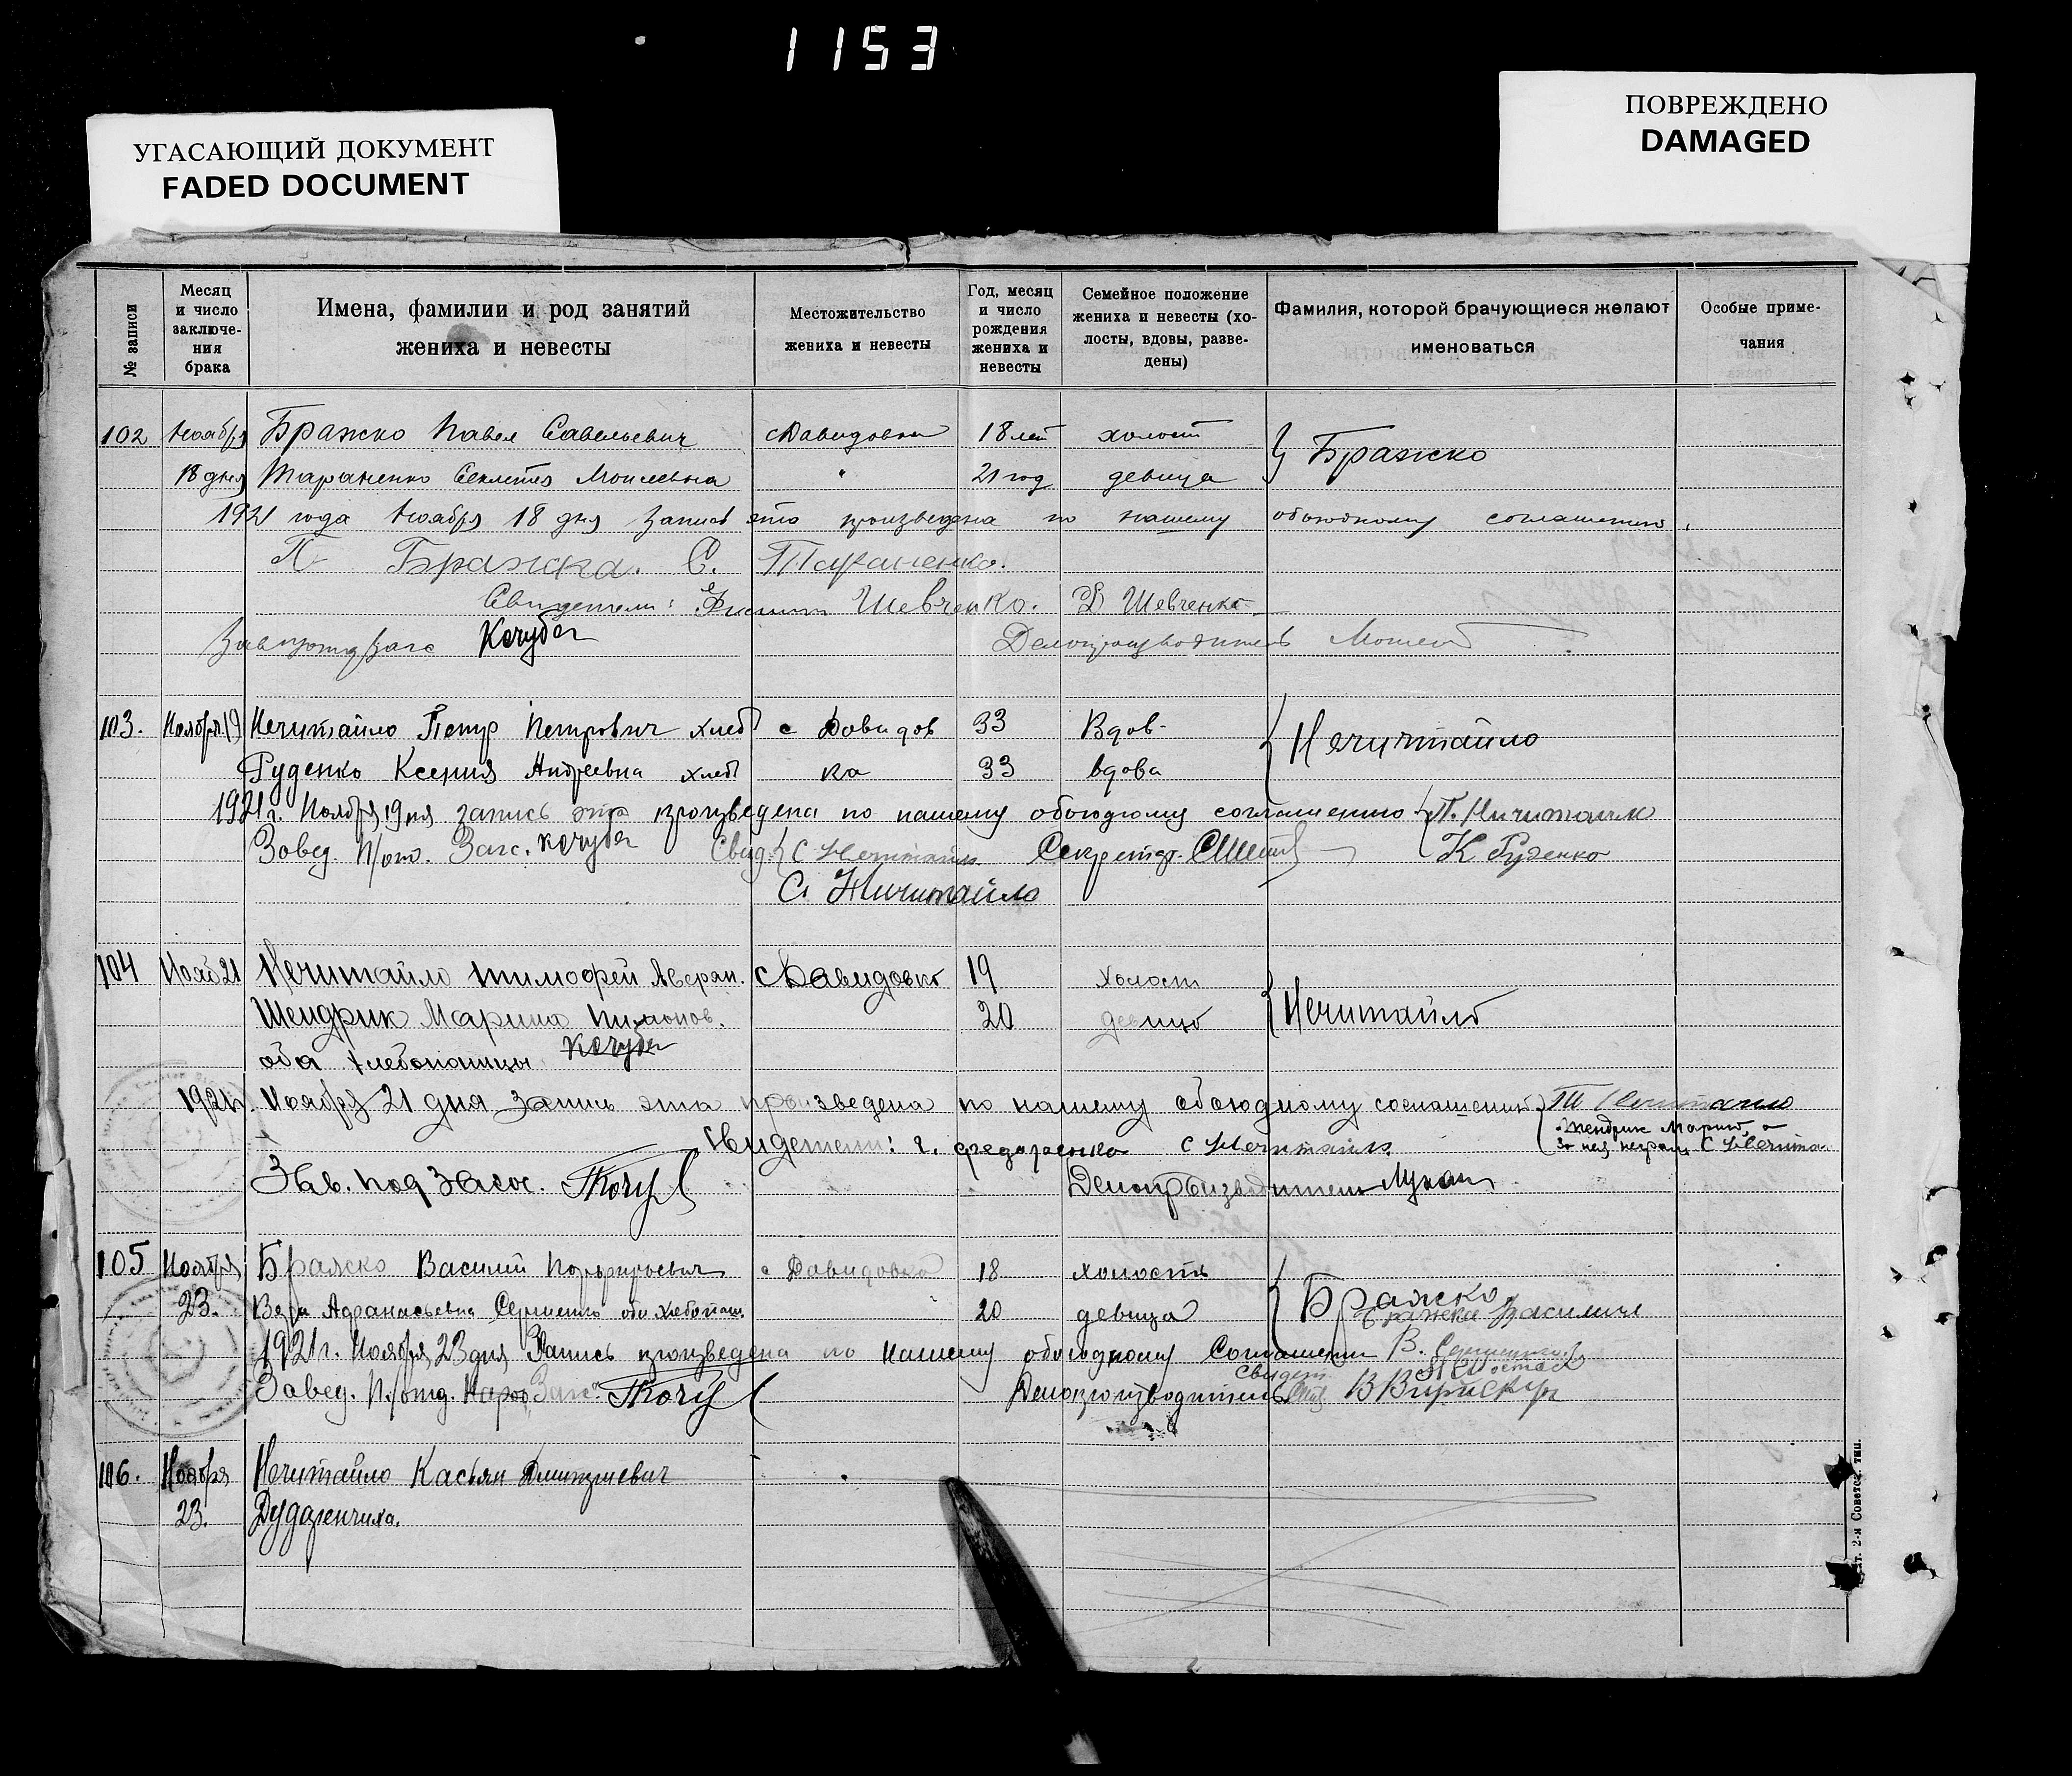 1153
УГАСАЮЩИЙ ДОКУМЕНТ
FADED DOCUMENT
ПОВРЕЖДЕНО
DAMAGED
№ записи
Месяц и число заключе-ния брака
Имена, фамилии и род занятий жениха и невесты
Местожительство жениха и невесты
Год, месяц и число рождения жениха и невесты
Семейное положение жениха и невесты (хо-лосты, вдовы, разве-дены)
Фамилия, которой брачующиеся желают именоваться
Особые приме-чания
102 Ноября Бражко Павел Савельевич с Давидовка 18 лет холост } Бражко
18 дня Тараненко Секлета Моисеевна " 21 год девица
1921 года Ноября 18 дня Запись эта произведена по нашему обоюдному соглашению.
П Бражка. С. Тараненко.
Свидетели: Шевченко. Д Шевченко
Кочубей Делопроизводитель
103. Ноября 19 Нечитайло Петр Петрович хлеб с Давидов 33 Вдов- { Нечитайло
Руденко Ксения Андреевна хлеб ка 33 вдова
1921 г. Ноября 19 дня запись эта произведена по нашему обоюдному соглашению { П. Ничитайло
Завед. П/от. Загс. Кочубей Свид. { С Нечитайло Секретарь К Руденко
С. Ничитайло
104 Нояб 21 Нечитайло Тимофей Аверян. с Давидовка 19 холост { Нечитайло
Шендрик Марина Пимонов. 20 девица
оба хлебопашцы Кочубей
1921 г. Ноября 21 дня Запись эта произведена по нашему обоюдному соглашению { Т Нечитайло
Шендрик Марина а
Свидетели: г. Федоренко С Нечитайло за нея неграм С Нечитай
Зав. под Загс. Кочу Делопроизводитель
105 Ноября Бражко Василий Порфирьевич с Давидовка 18 холост { Бражко
23. Вера Афанасьевна оба хлебопаш. 20 девица Бражка Василий
1921 г. Ноября 23 дня Запись произведена по нашему обоюдному Соглашению В.
Свидет.
Завед. П/отд. Загс. Кочу Делопроизводитель В
106. Ноября Нечитайло Касьян Дмитриевич
23. Дударенчиха.
2-я Советск. тип.